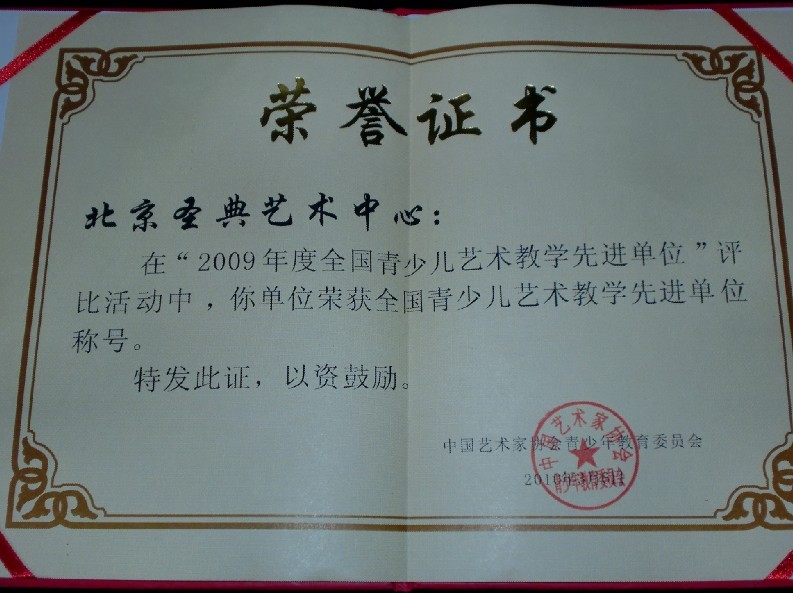 荣誉证书
北京圣典艺术中心：
在“2009年度全国青少儿艺术教学先进单位”评
比活动中，你单位荣获全国青少儿艺术教学先进单位
称号。
特发此证，以资鼓励。
中国艺术家协会青少年教育委员会
中国艺术家协会
2010年3月
青少年教育委员会